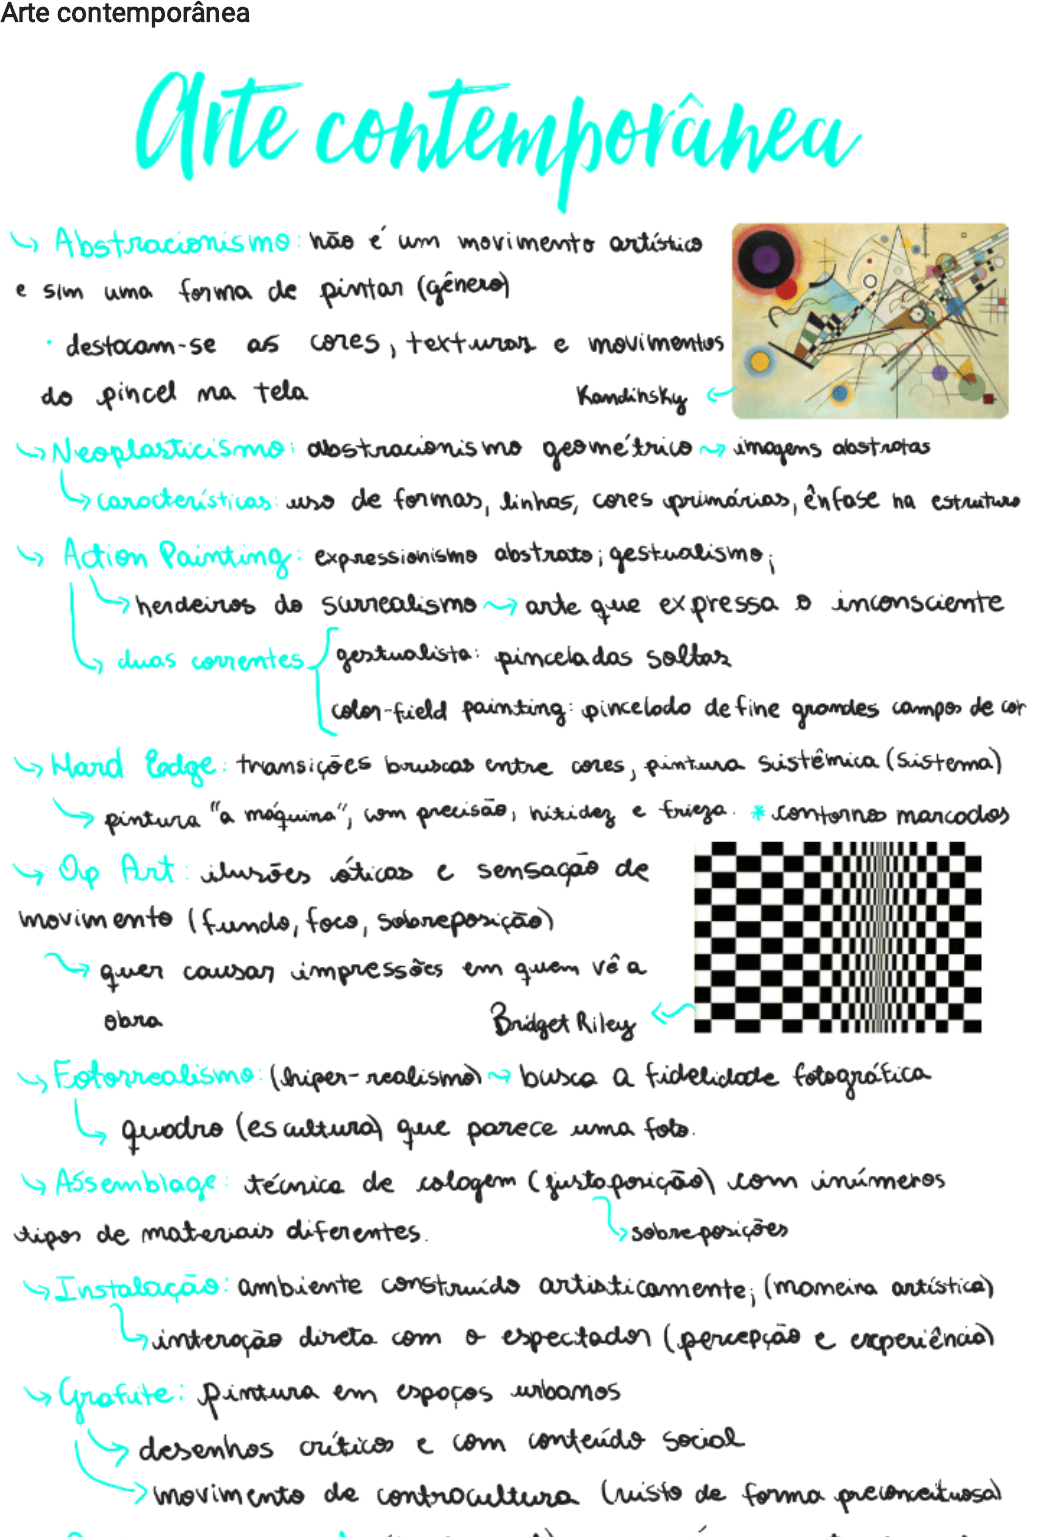 Arte contemporânea
Arte contemporânea
↳ Abstracionismo: não é um movimento artístico
e sim uma forma de pintar (gênero)
· destacam-se as cores, texturas e movimentos
do pincel na tela
Kandinsky
↳ Neoplasticismo: abstracionismo geométrico → imagens abstratas
↳ características: uso de formas, linhas, cores primárias, ênfase na estrutura
↳ Action Painting: expressionismo abstrato; gestualismo;
↳ herdeiros do surrealismo → arte que expressa o inconsciente
↳ duas correntes
gestualista: pinceladas soltas
color-field painting: pincelado define grandes campos de cor
↳ Hard Edge: transições bruscas entre cores, pintura sistêmica (sistema)
↳ pintura "a máquina", com precisão, nitidez e frieza. * contornos marcados
↳ Op Art: ilusões óticas e sensação de
movimento (fundo, foco, sobreposição)
↳ quer causar impressões em quem vê a
obra
Bridget Riley
↳ Fotorrealismo: (hiper-realismo) → busca a fidelidade fotográfica
↳ quadro (escultura) que parece uma foto.
↳ Assemblage: técnica de colagem (justaposição) com inúmeros
tipos de materiais diferentes.
↳ sobreposições
↳ Instalação: ambiente construído artisticamente; (maneira artística)
↳ interação direta com o espectador (percepção e experiência)
↳ Grafite: pintura em espaços urbanos
↳ desenhos críticos e com conteúdo social
↳ movimento de contracultura (visto de forma preconceituosa)